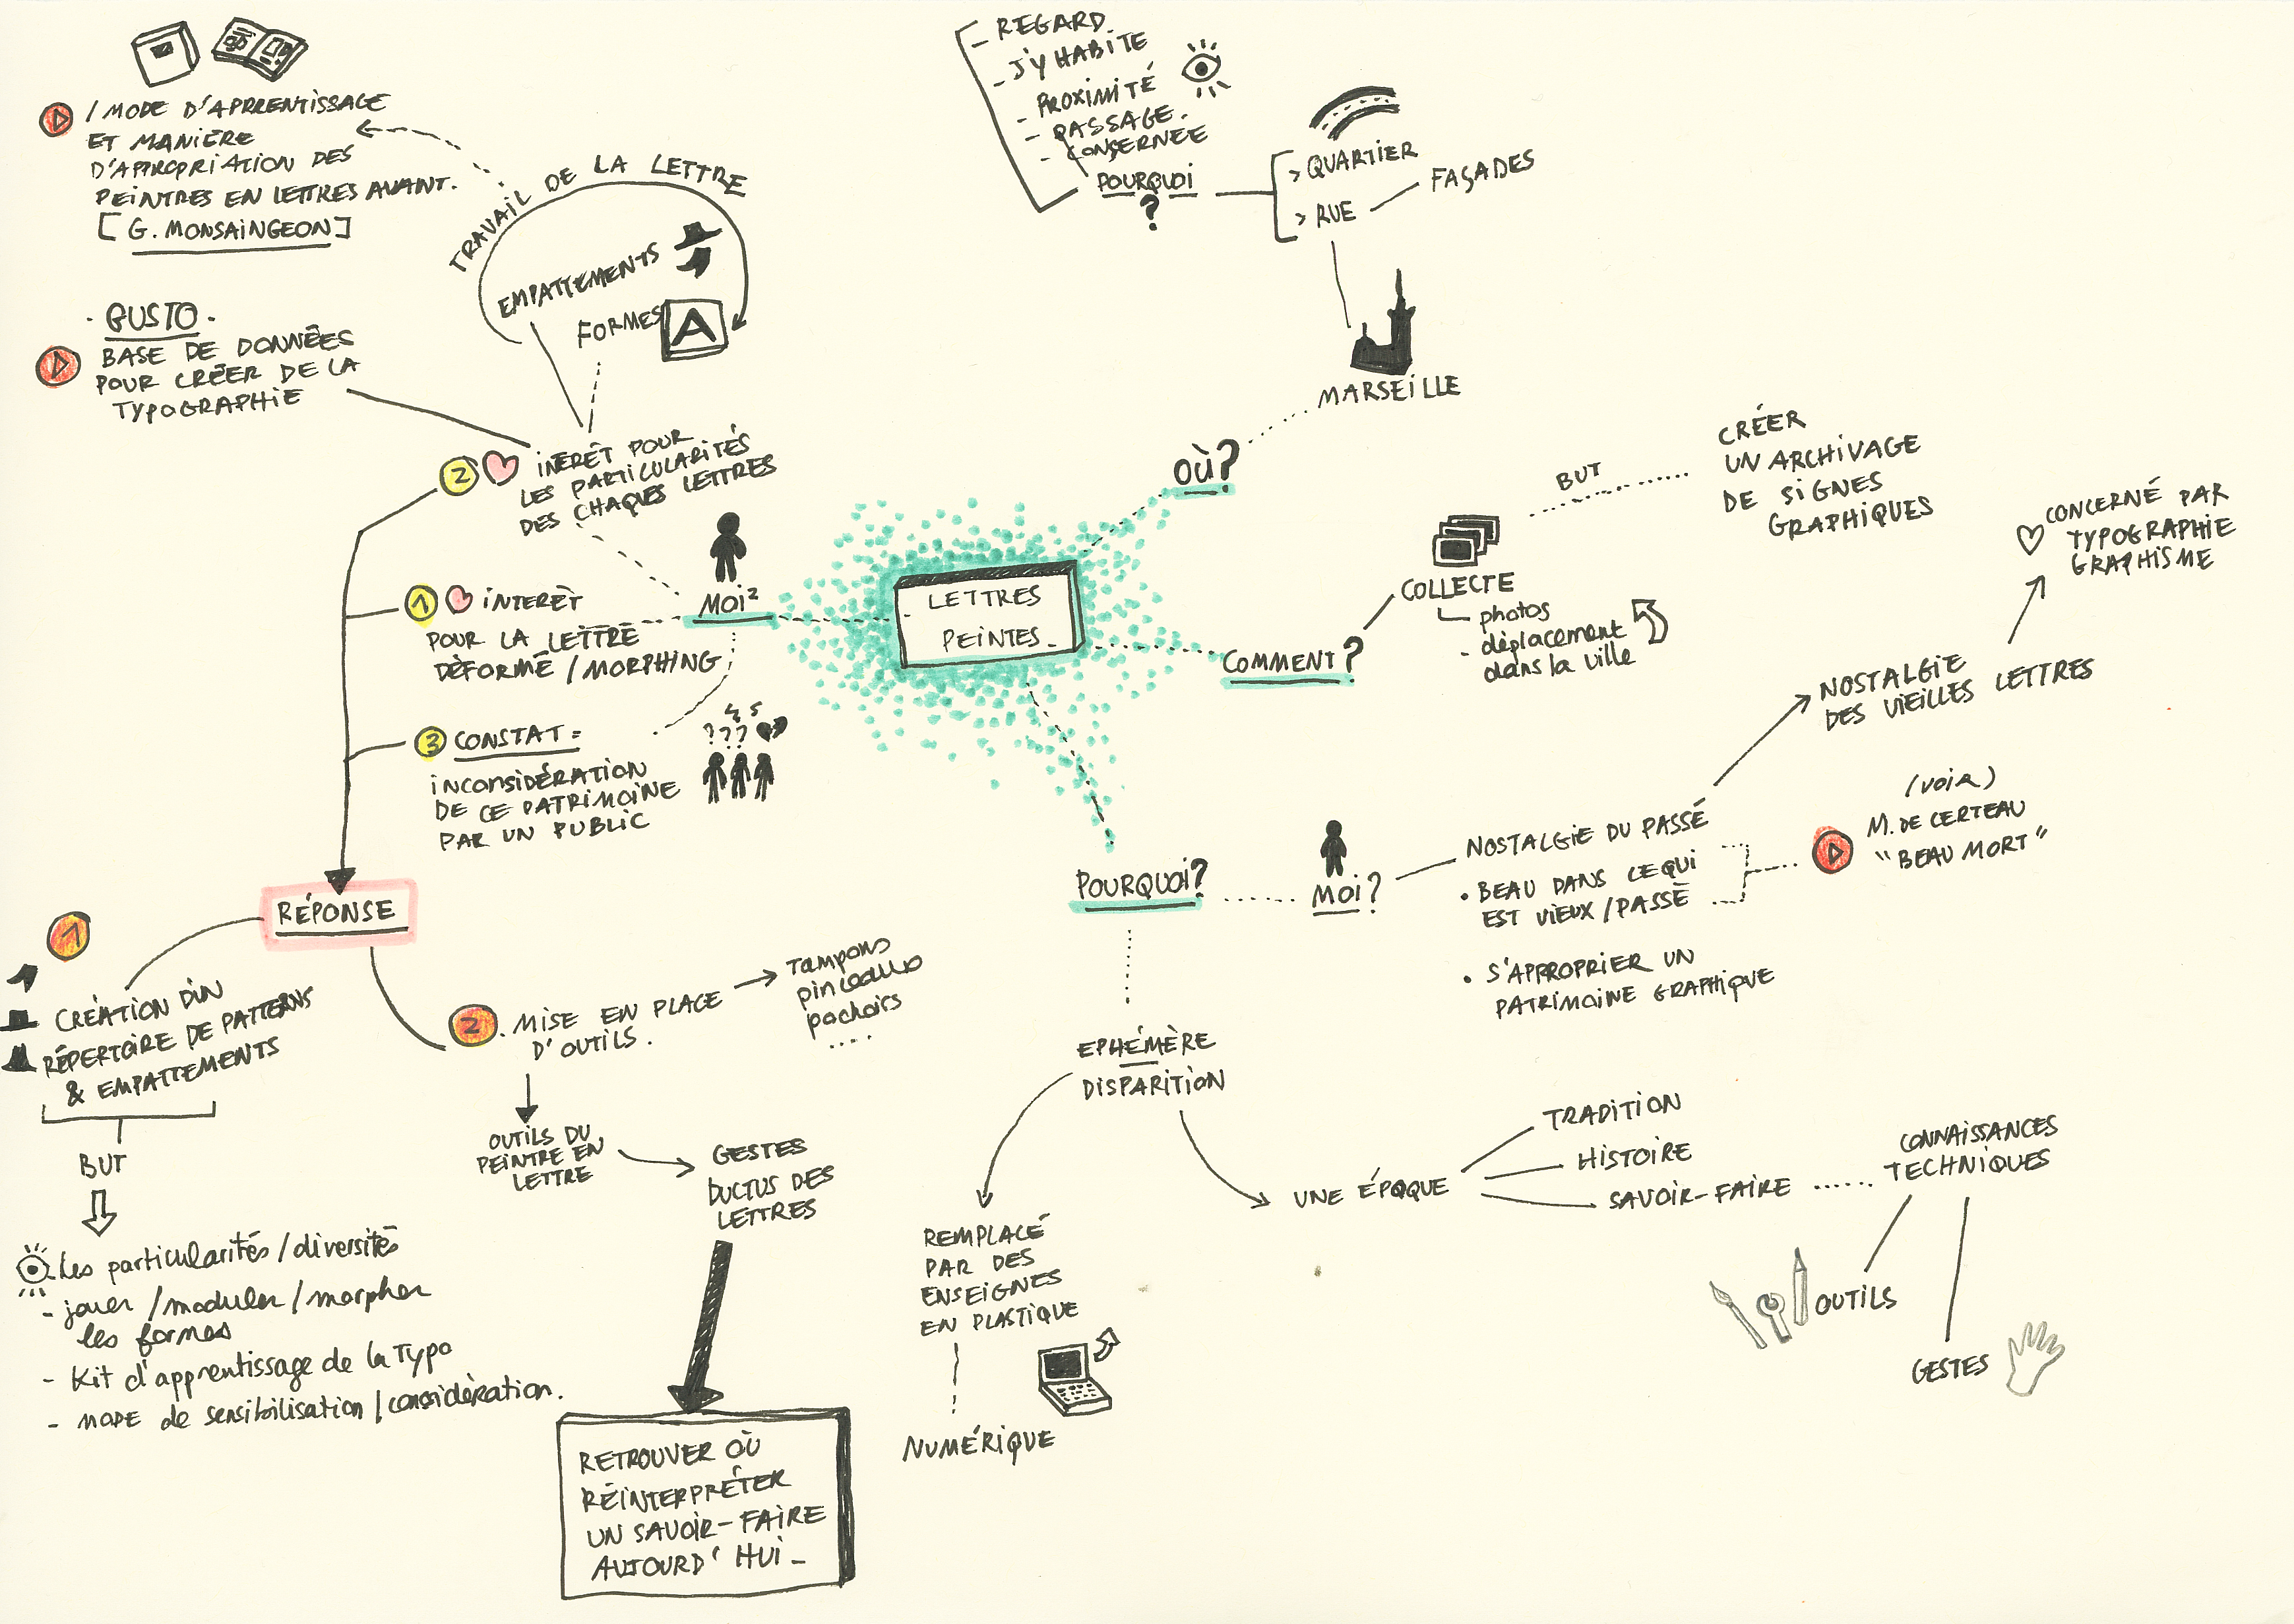 / MODE D'APPRENTISSAGE
ET MANIÈRE
D'APPROPRIATION DES
PEINTRES EN LETTRES AVANT.
[G. MONSAINGEON]
TRAVAIL DE LA LETTRE
EMPATTEMENTS
FORMES
A
- GUSTO -
BASE DE DONNÉES
POUR CRÉER DE LA
TYPOGRAPHIE
2
INERÊT POUR
LES PARTICULARITÉS
DES CHAQUES LETTRES
MOI²
1
INTERÊT
POUR LA LETTRE
DÉFORMÉ / MORPHING
3
CONSTAT =
INCONSIDÉRATION
DE CE PATRIMOINE
PAR UN PUBLIC
???
RÉPONSE
1
CRÉATION D'UN
RÉPERTOIRE DE PATTERNS
& EMPATTEMENTS
BUT
Les particularités / diversités
- jouer / moduler / morpher
les formes
- Kit d'apprentissage de la Typo
- MODE de sensibilisation / considération.
2
. MISE EN PLACE
D'OUTILS.
Tampons
pinceaux
pochoirs
....
OUTILS DU
PEINTRE EN
LETTRE
GESTES
DUCTUS DES
LETTRES
RETROUVER OÙ
RÉINTERPRÉTER
UN SAVOIR-FAIRE
AUJOURD'HUI -
LETTRES
PEINTES -
OÙ?
MARSEILLE
- REGARD
- J'Y HABITE
- PROXIMITÉ
- PASSAGE.
- CONSERNÉE
POURQUOI
?
> QUARTIER
> RUE
FAÇADES
COMMENT?
COLLECTE
photos
- déplacement
dans la ville
BUT
CRÉER
UN ARCHIVAGE
DE SIGNES
GRAPHIQUES
POURQUOI?
MOI?
NOSTALGIE DU PASSÉ
• BEAU DANS CE QUI
EST VIEUX / PASSÉ
• S'APPROPRIER UN
PATRIMOINE GRAPHIQUE
NOSTALGIE
DES VIEILLES LETTRES
CONCERNÉ PAR
TYPOGRAPHIE
GRAPHISME
(VOIR)
M. DE CERTEAU
"BEAU MORT"
EPHÉMÈRE
DISPARITION
REMPLACÉ
PAR DES
ENSEIGNES
EN PLASTIQUE
NUMÉRIQUE
UNE ÉPOQUE
TRADITION
HISTOIRE
SAVOIR-FAIRE
CONNAISSANCES
TECHNIQUES
OUTILS
GESTES